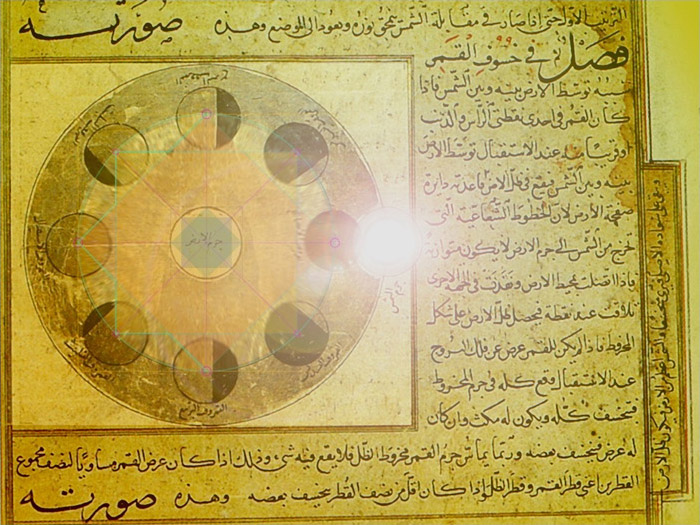 التربيع الاول حتى اذا صار في مقابلة الشمس نوره ويعود الى الموضع وهذه صورته
فصل في خسوف القمر
سببه توسط الارض بينه وبين الشمس فاذا
كان القمر في احدى نقطتي الراس والذنب
او قريبا منه عند الاستقبال توسط الارض
بينه وبين الشمس فيقع في ظل الارض قاعدته دايرة
صفحة الارض لان الخطوط الشعاعية التي
تخرج من الشمس الى جرم الارض لا يكون متوازية
فاذا اتصلت بمحيط الارض ونفذت في الجهة الاخرى
تلاقت عند نقطة فيحصل ظل الارض على شكل
المخروط فاذا لم يكن للقمر عرض عن فلك البروج
عند الاستقبال وقع كله في جرم المخروط
فيخسف كله ويكون له مكث وان كان
له عرض فيخسف بعضه وربما يماس جرم القمر مخروط الظل فلا يقع فيه شيء وذلك اذا كان عرض القمر مساويا لنصف مجموع
القطرين اعني قطر القمر وقطر الظل واذا كان اقل من نصف القطر يخسف بعضه وهذه صورته
جرم الارض
جرم الشمس